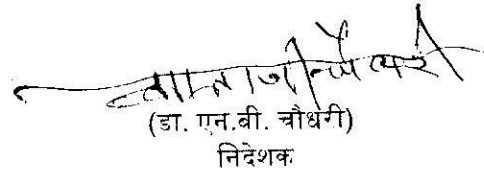 (डा. एन.बी. चौधरी)
निदेशक